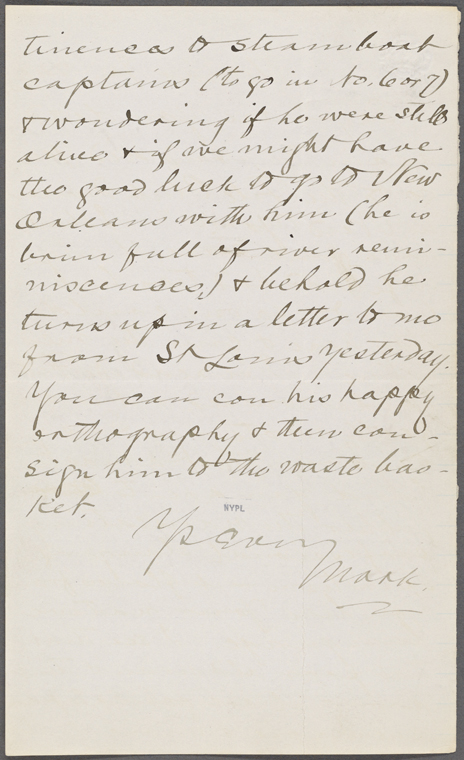 tinences to steamboat
captains (to go in No. 6 or 7)
& wondering if he were still
alive & if we might have
the good luck to go to New
Orleans with him (he is
brim full of river remi-
niscences) & behold he
turns up in a letter to me
from St Louis yesterday.
You can con his happy
orthography & then con-
sign him to the waste bas-
ket.
NYPL
Yrs Ever
Mark.